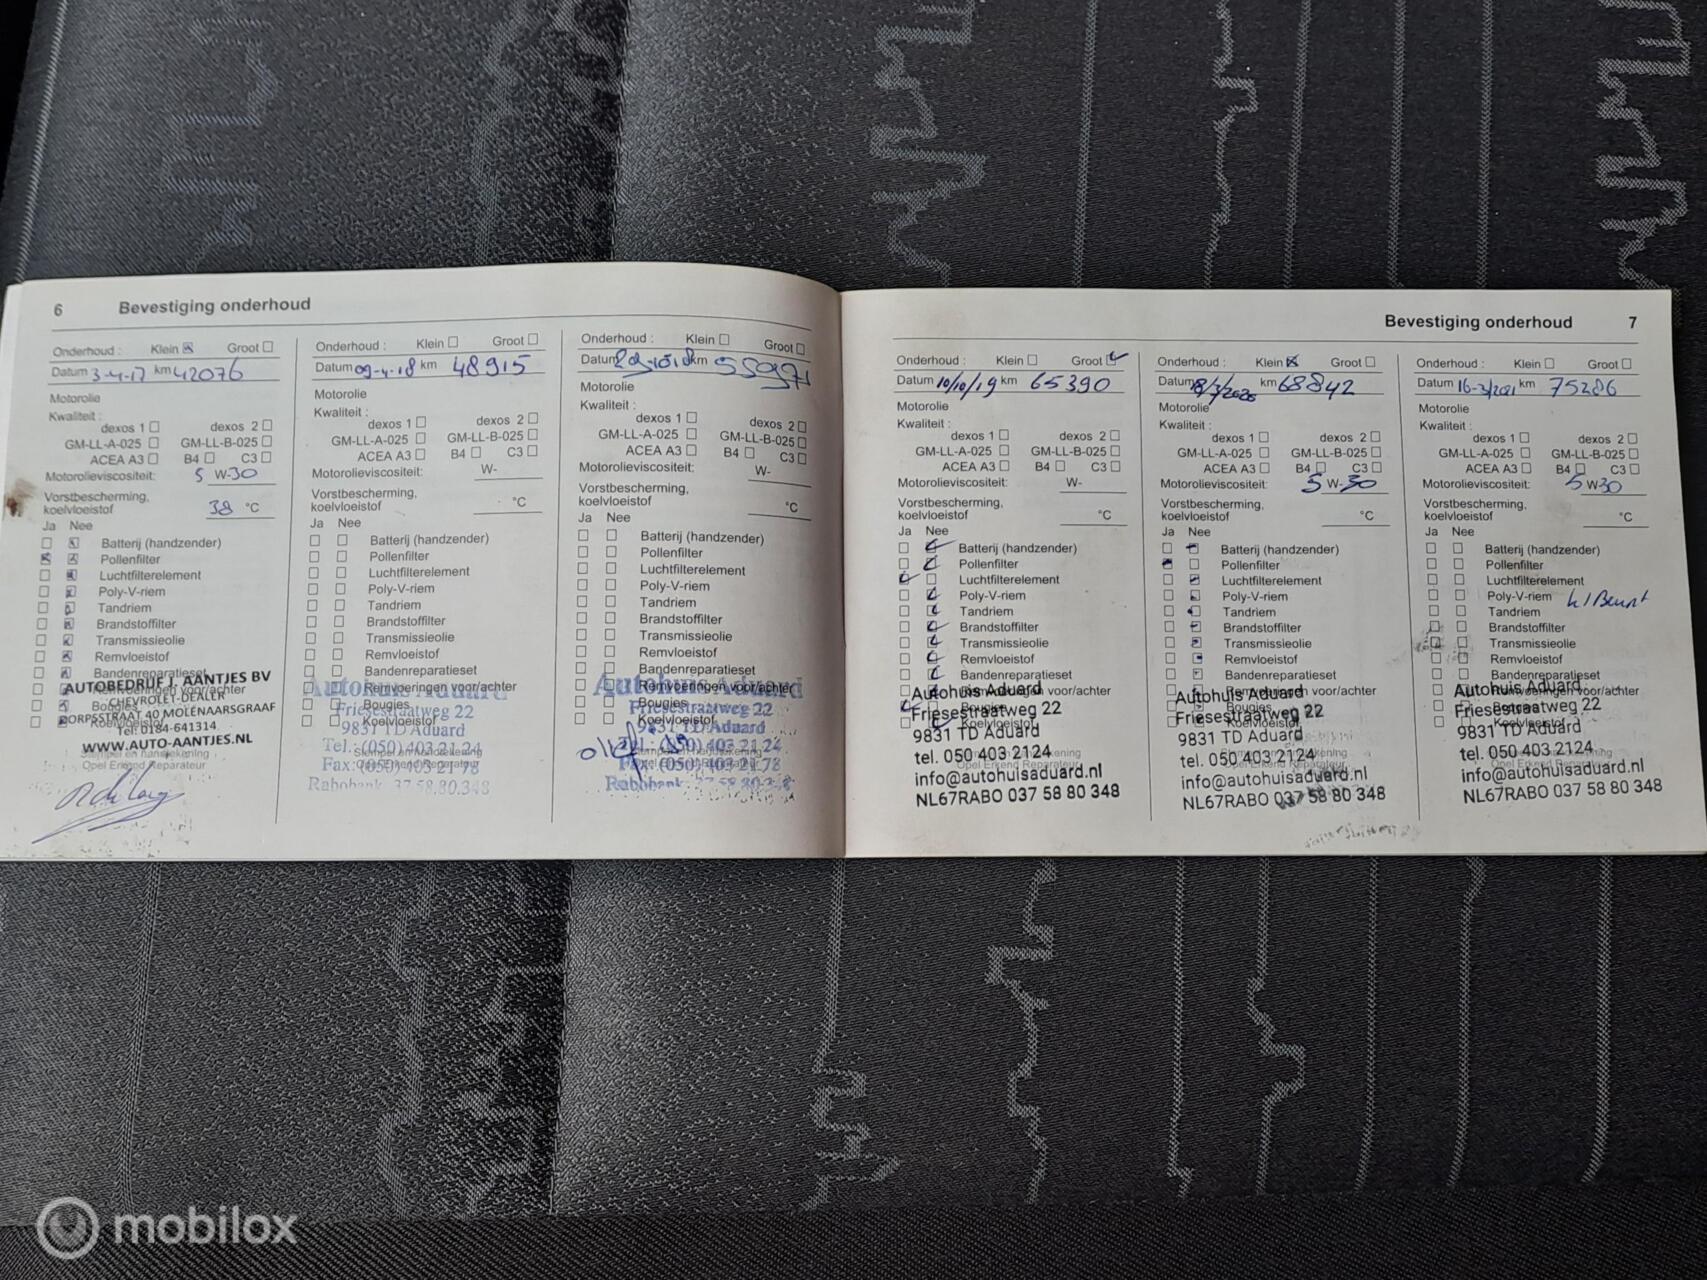 6 Bevestiging onderhoud
Onderhoud : Klein Groot
Datum 3-4-17 km 42076
Motorolie
Kwaliteit :
dexos 1 dexos 2
GM-LL-A-025 GM-LL-B-025
ACEA A3 B4 C3
Motorolieviscositeit: 5 W-30
Vorstbescherming,
koelvloeistof 38 °C
Ja Nee
Batterij (handzender)
Pollenfilter
Luchtfilterelement
Poly-V-riem
Tandriem
Brandstoffilter
Transmissieolie
Remvloeistof
Bandenreparatieset
AUTOBEDRIJF J. AANTJES BV
CHEVROLET-DEALER
DORPSSTRAAT 40 MOLENAARSGRAAF
Tel: 0184-641314
WWW.AUTO-AANTJES.NL
Opel Erkend Reparateur
Onderhoud : Klein Groot
Datum 09-4-18 km 48915
Motorolie
Kwaliteit :
dexos 1 dexos 2
GM-LL-A-025 GM-LL-B-025
ACEA A3 B4 C3
Motorolieviscositeit: W-
Vorstbescherming,
koelvloeistof °C
Ja Nee
Batterij (handzender)
Pollenfilter
Luchtfilterelement
Poly-V-riem
Tandriem
Brandstoffilter
Transmissieolie
Remvloeistof
Bandenreparatieset
Remvoeringen voor/achter
Bougies
Koelvloeistof
Autohuis Aduard
Friesestraatweg 22
9831 TD Aduard
Tel.: (050) 403 21 24
Fax: (050) 403 21 78
Rabobank 37.58.80.348
Onderhoud : Klein Groot
Datum km
Motorolie
Kwaliteit :
dexos 1 dexos 2
GM-LL-A-025 GM-LL-B-025
ACEA A3 B4 C3
Motorolieviscositeit: W-
Vorstbescherming,
koelvloeistof °C
Ja Nee
Batterij (handzender)
Pollenfilter
Luchtfilterelement
Poly-V-riem
Tandriem
Brandstoffilter
Transmissieolie
Remvloeistof
Bandenreparatieset
Remvoeringen voor/achter
Bougies
Koelvloeistof
Autohuis Aduard
Friesestraatweg 22
9831 TD Aduard
Tel.: (050) 403 21 24
Fax: (050) 403 21 78
Rabobank 37.58.80.348
Bevestiging onderhoud 7
Onderhoud : Klein Groot
Datum 10/10/19 km 65390
Motorolie
Kwaliteit :
dexos 1 dexos 2
GM-LL-A-025 GM-LL-B-025
ACEA A3 B4 C3
Motorolieviscositeit: W-
Vorstbescherming,
koelvloeistof °C
Ja Nee
Batterij (handzender)
Pollenfilter
Luchtfilterelement
Poly-V-riem
Tandriem
Brandstoffilter
Transmissieolie
Remvloeistof
Bandenreparatieset
Autohuis Aduard
Friesestraatweg 22
9831 TD Aduard
tel. 050 403 2124
info@autohuisaduard.nl
NL67RABO 037 58 80 348
Onderhoud : Klein Groot
Datum km 68842
Motorolie
Kwaliteit :
dexos 1 dexos 2
GM-LL-A-025 GM-LL-B-025
ACEA A3 B4 C3
Motorolieviscositeit: 5 W-30
Vorstbescherming,
koelvloeistof °C
Ja Nee
Batterij (handzender)
Pollenfilter
Luchtfilterelement
Poly-V-riem
Tandriem
Brandstoffilter
Transmissieolie
Remvloeistof
Bandenreparatieset
Autohuis Aduard
Friesestraatweg 22
9831 TD Aduard
tel. 050 403 2124
info@autohuisaduard.nl
NL67RABO 037 58 80 348
Onderhoud : Klein Groot
Datum 16-3/2021 km 75286
Motorolie
Kwaliteit :
dexos 1 dexos 2
GM-LL-A-025 GM-LL-B-025
ACEA A3 B4 C3
Motorolieviscositeit: 5 W-30
Vorstbescherming,
koelvloeistof °C
Ja Nee
Batterij (handzender)
Pollenfilter
Luchtfilterelement
Poly-V-riem
Tandriem
Brandstoffilter
Transmissieolie
Remvloeistof
Bandenreparatieset
Autohuis Aduard
Friesestraatweg 22
9831 TD Aduard
tel. 050 403 2124
info@autohuisaduard.nl
NL67RABO 037 58 80 348
mobilox